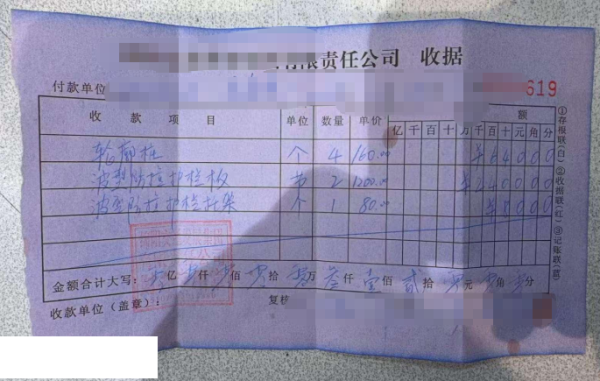 有限责任公司 收据
付款单位 619
收款项目 单位 数量 单价 额
亿千百十万千百十元角分
轮廓柱 个 4 160.00 ¥64000
波型防撞护栏板 节 2 1200.00 ¥240000
波型防撞护栏托架 个 1 80.00 ¥8000
金额合计大写: 亿 仟 佰 拾 万 叁仟 壹佰 贰拾 元 角 分
收款单位(盖章): 复核
①存根联(白)②收据联(红)③记账联(蓝)